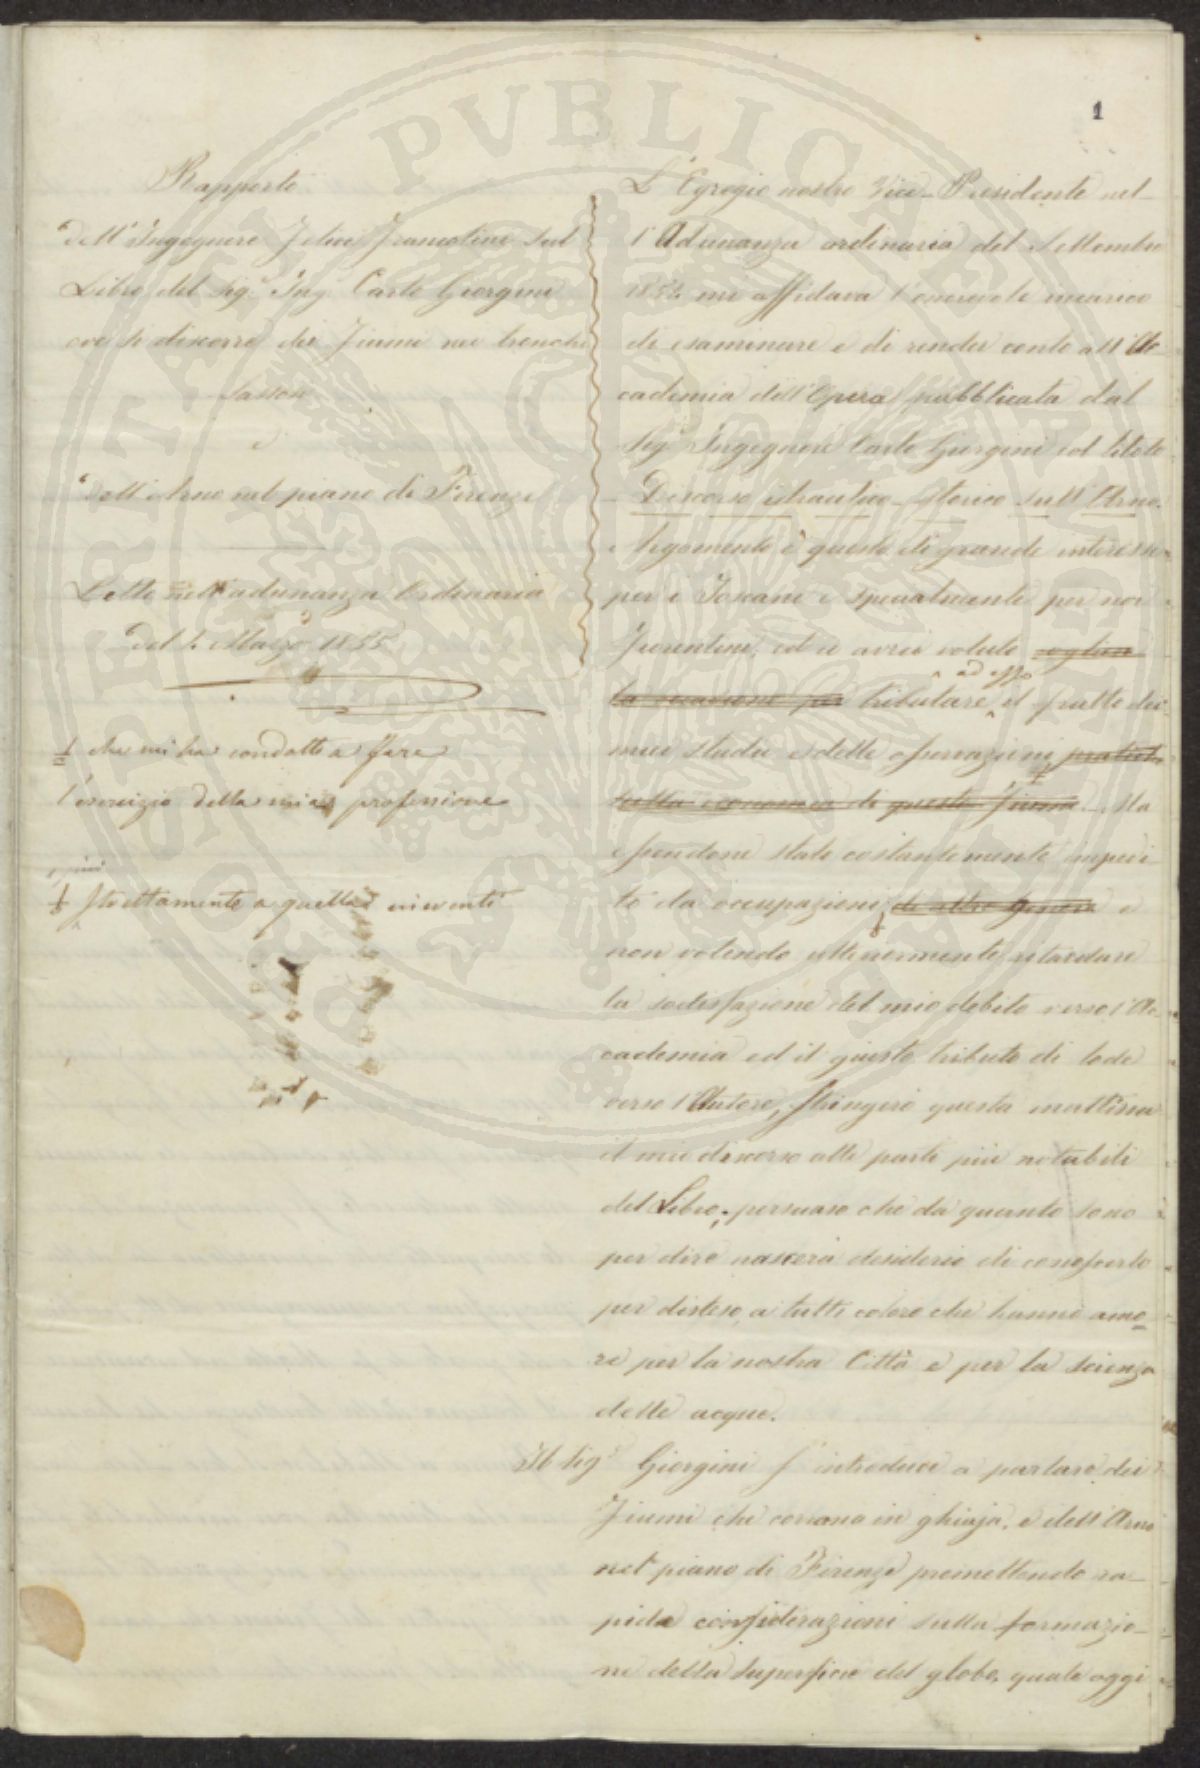 1
Rapporto
dell'Ingegnere Felice Francolini sul
Libro del Sigr. Ing. Carlo Giorgini
ove si discorre dei Fiumi nei tronchi
Sassosi
e
dell'Arno nel piano di Firenze
Letto nell'adunanza Ordinaria
del 4 Marzo 1855
che mi ha condotto a fare
l'esercizio della mia professione
e più
strettamente a quella inerenti
L'Egregio nostro Vice-Presidente nel-
l'Adunanza ordinaria del Settembre
1854 mi affidava l'onorevole incarico
di esaminare e di render conto all'Ac-
cademia dell'Opera pubblicata dal
Sigr. Ingegnere Carlo Giorgini col titolo
Discorso idraulico-storico sull'Arno.
Argomento è questo di grande interesse
per i Toscani e specialmente per noi
Fiorentini, ed io avrei voluto coglier
ad esso
la occasione per tributare il frutto dei
miei studii e delle osservazioni pratiche
sulla economia di questo Fiume. Ma
essendone stato costantemente impedi-
to da occupazioni di altro genere e
non volendo ulteriormente ritardare
la sodisfazione del mio debito verso l'Ac-
cademia ed il giusto tributo di lode
verso l'Autore, stringerò questa mattina
il mio discorso alle parti più notabili
del Libro; persuaso che da quanto sono
per dire nascerà desiderio di conoscerlo
per disteso a tutti coloro che hanno amo-
re per la nostra Città e per la scienza
delle acque.
Il Sigr. Giorgini s'introduce a parlare dei
Fiumi che corrono in ghiaja, e dell'Arno
nel piano di Firenze premettendo ra-
pide considerazioni sulla formazio-
ne della superficie del globo, quale oggi